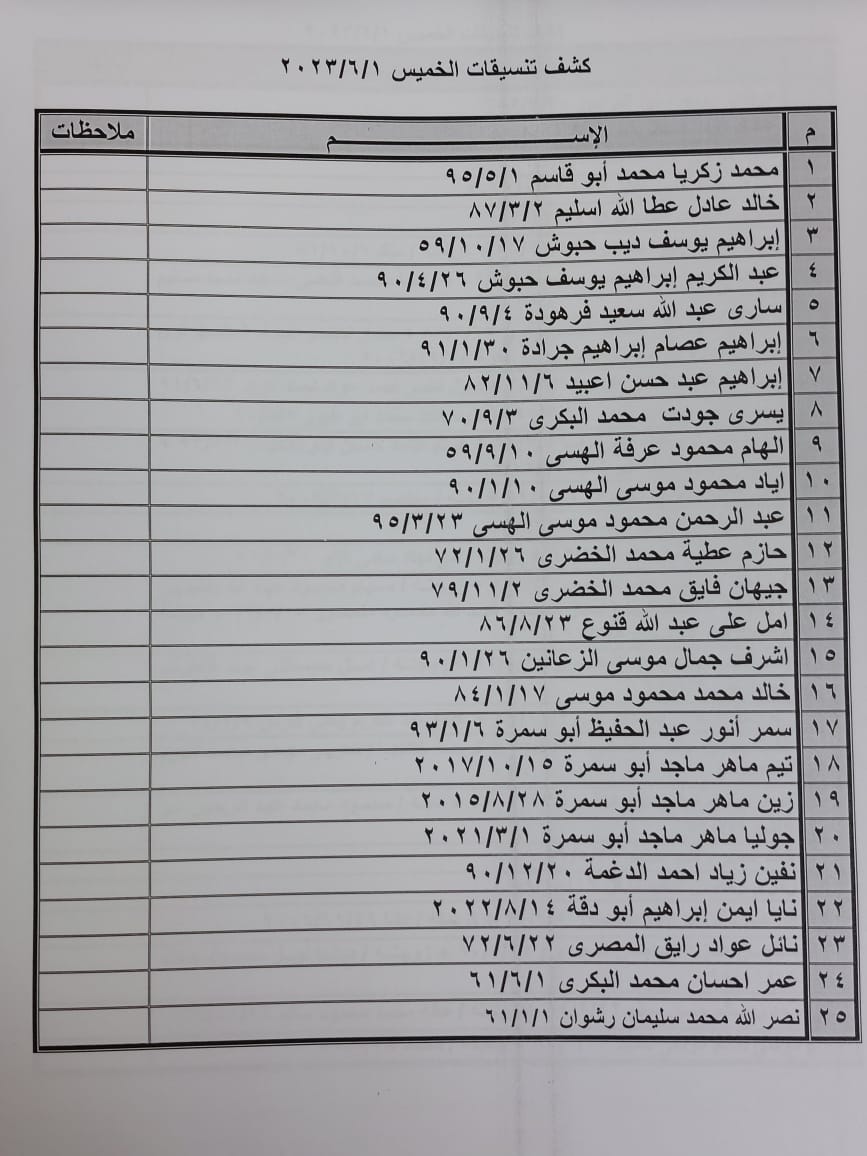 كشف تنسيقات الخميس ٢٠٢٣/٦/١
م الإســـــــــــم ملاحظات
١ محمد زكريا محمد أبو قاسم ٩٥/٥/١
٢ خالد عادل عطا الله اسليم ٨٧/٣/٢
٣ إبراهيم يوسف ديب حبوش ٥٩/١٠/١٧
٤ عبد الكريم إبراهيم يوسف حبوش ٩٠/٤/٢٦
٥ سارى عبد الله سعيد فرهودة ٩٠/٩/٤
٦ إبراهيم عصام إبراهيم جرادة ٩١/١/٣٠
٧ إبراهيم عبد حسن اعبيد ٨٢/١١/٦
٨ يسرى جودت محمد البكرى ٧٠/٩/٣
٩ الهام محمود عرفة الهسى ٥٩/٩/١٠
١٠ اياد محمود موسى الهسى ٩٠/١/١٠
١١ عبد الرحمن محمود موسى الهسى ٩٥/٣/٢٣
١٢ حازم عطية محمد الخضرى ٧٢/١/٢٦
١٣ جيهان فايق محمد الخضرى ٧٩/١١/٢
١٤ امل على عبد الله قنوع ٨٦/٨/٢٣
١٥ اشرف جمال موسى الزعانين ٩٠/١/٢٦
١٦ خالد محمد محمود موسى ٨٤/١/١٧
١٧ سمر أنور عبد الحفيظ أبو سمرة ٩٣/١/٦
١٨ تيم ماهر ماجد أبو سمرة ٢٠١٧/١٠/١٥
١٩ زين ماهر ماجد أبو سمرة ٢٠١٥/٨/٢٨
٢٠ جوليا ماهر ماجد أبو سمرة ٢٠٢١/٣/١
٢١ نفين زياد احمد الدغمة ٩٠/١٢/٢٠
٢٢ نايا ايمن إبراهيم أبو دقة ٢٠٢٢/٨/١٤
٢٣ نائل عواد رايق المصرى ٧٢/٦/٢٢
٢٤ عمر احسان محمد البكرى ٦١/٦/١
٢٥ نصر الله محمد سليمان رشوان ٦١/١/١